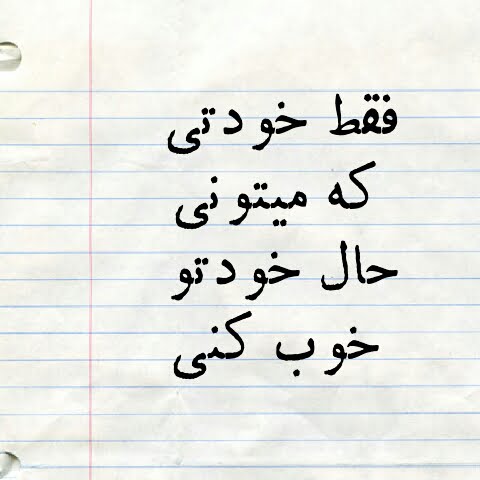 فقط خودتی
که میتونی
حال خودتو
خوب کنی